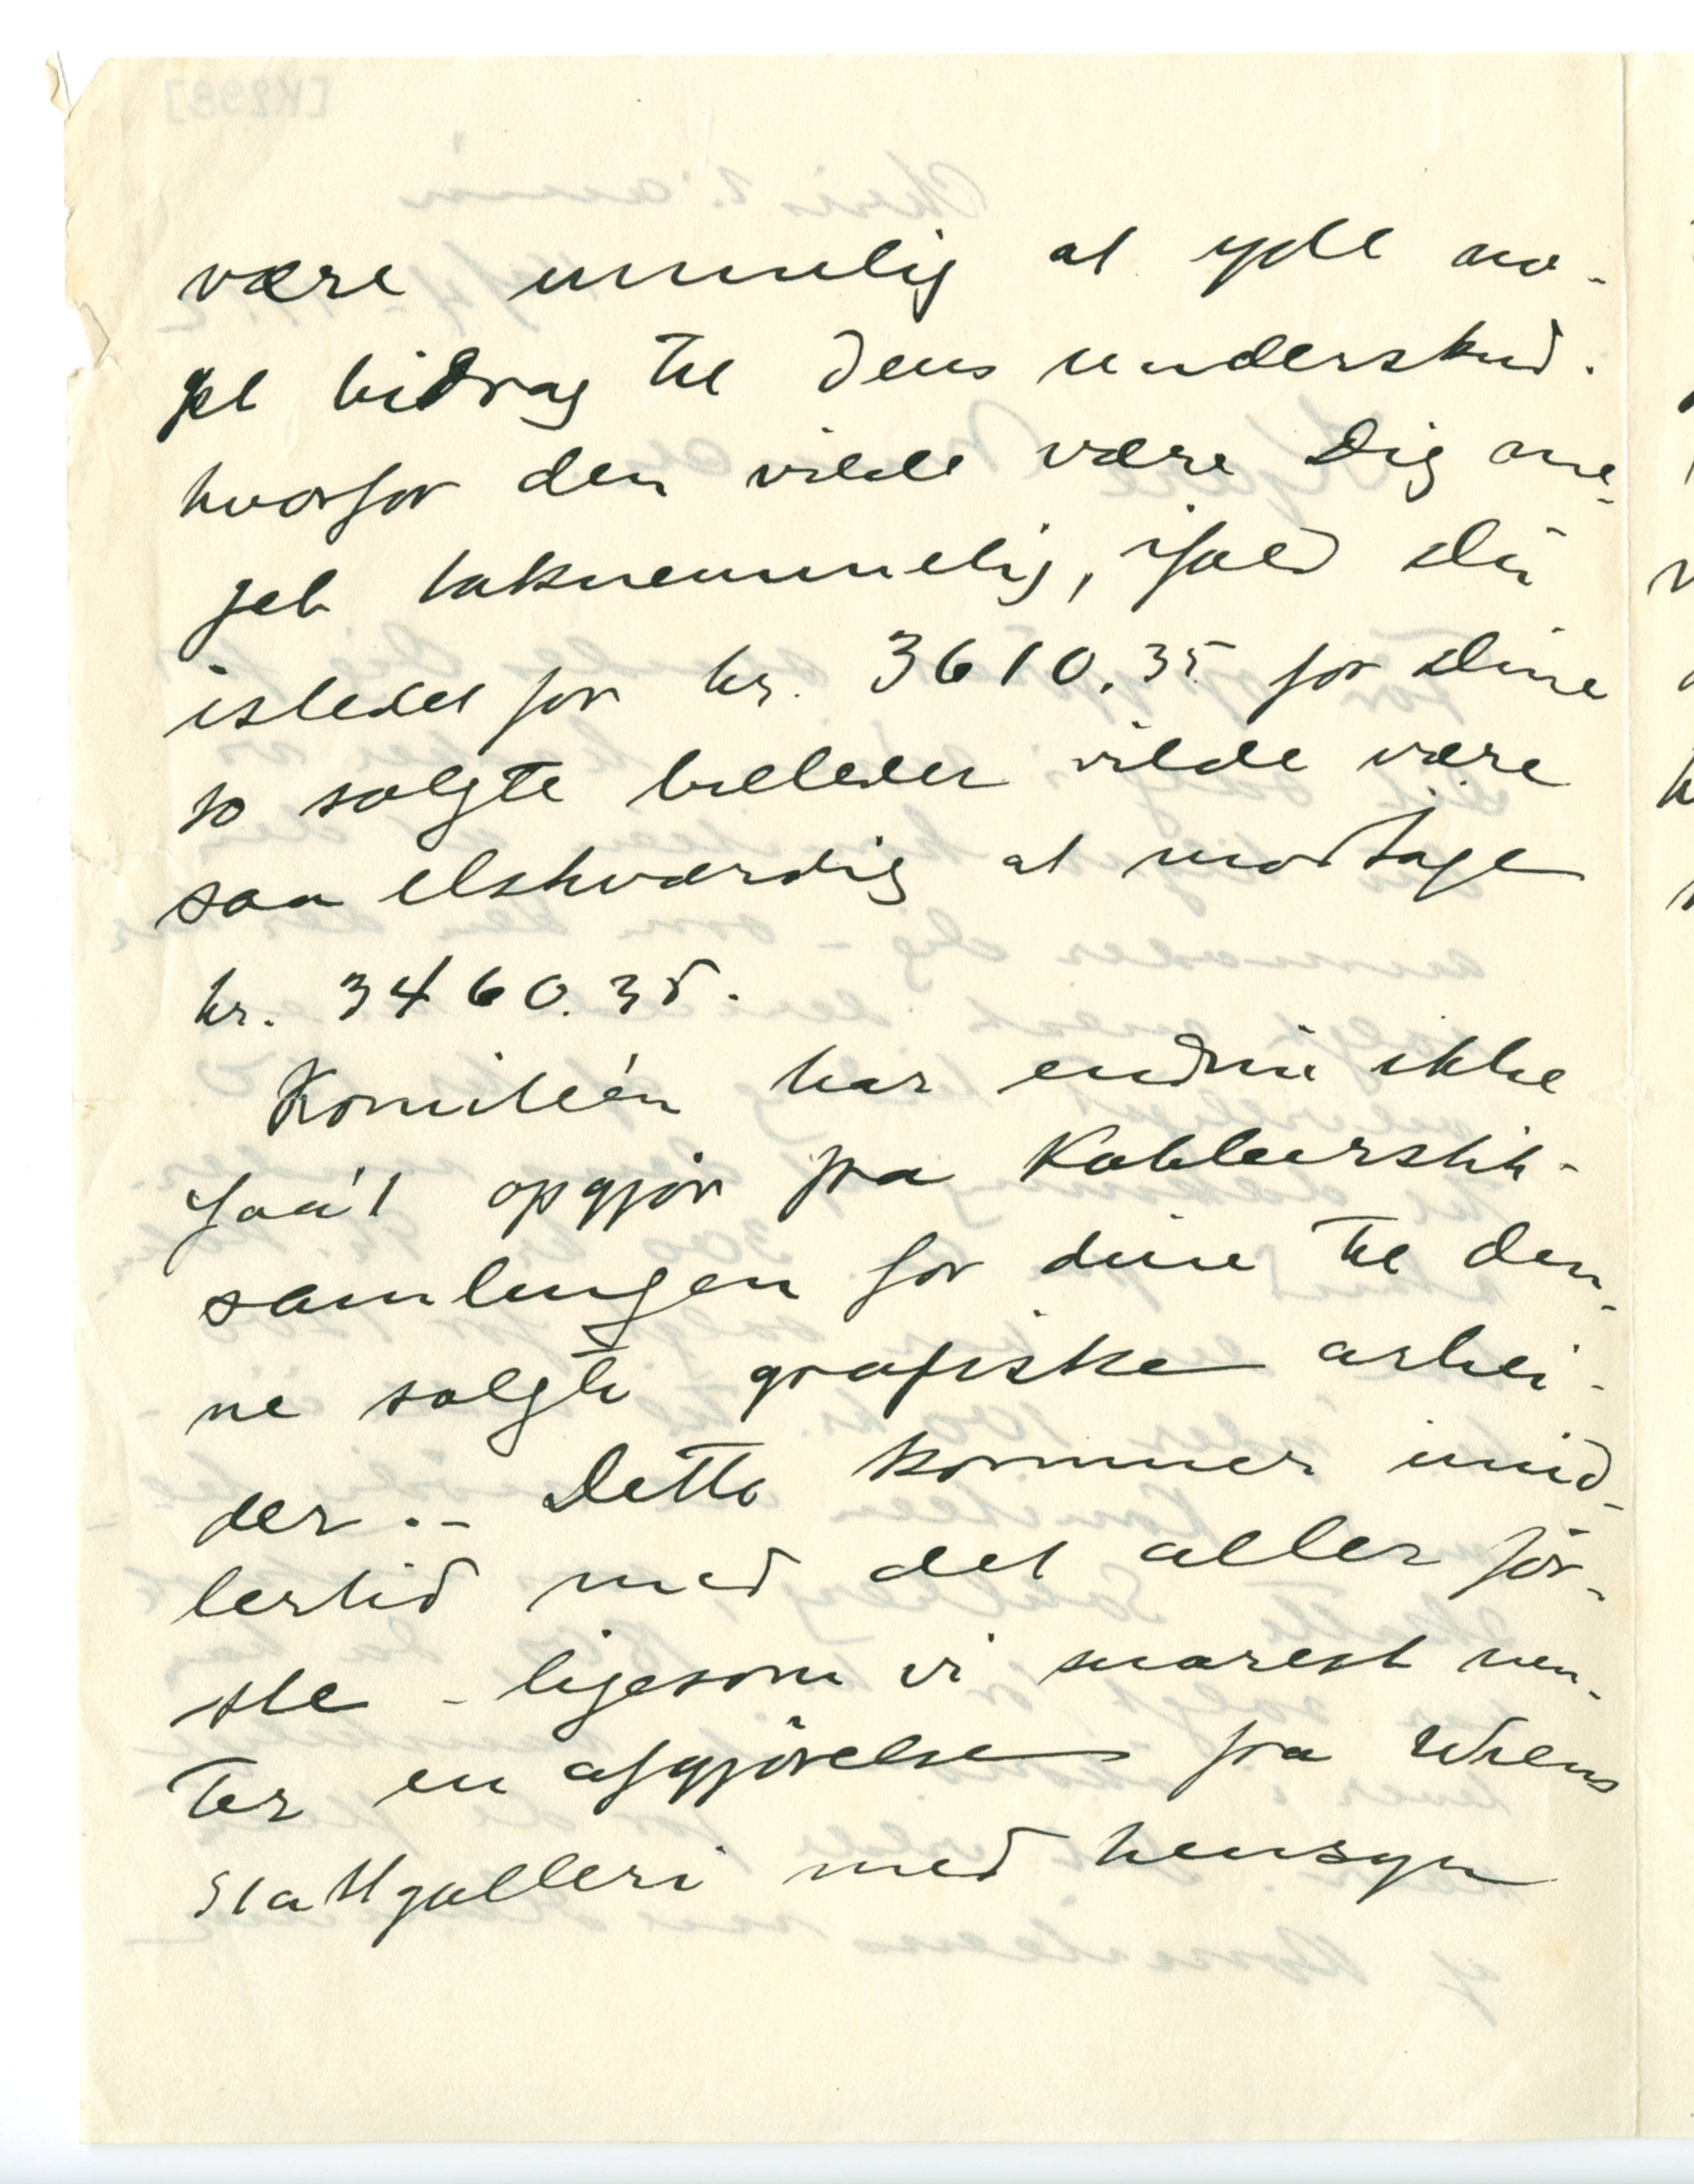 være umulig at yde no-
get bidrag til dens underskud.
hvorfor den vilde være Dig me-
get taknemmelig, ifald Du
istedet for kr. 3610.35 for Dine
to solgte billeder vilde være
saa elskværdig at modtage
kr. 3460.35.
Komitéen har endnu ikke
faa't opgjør fra Kobberstik-
samlingen for dine til den-
ne solgte grafiske arbei-
der. – Dette kommer imid-
lertid med det aller før-
ste – ligesom vi snarest ven-
ter en afgjørelse fra Wiens
Stattgalleri med hensyn